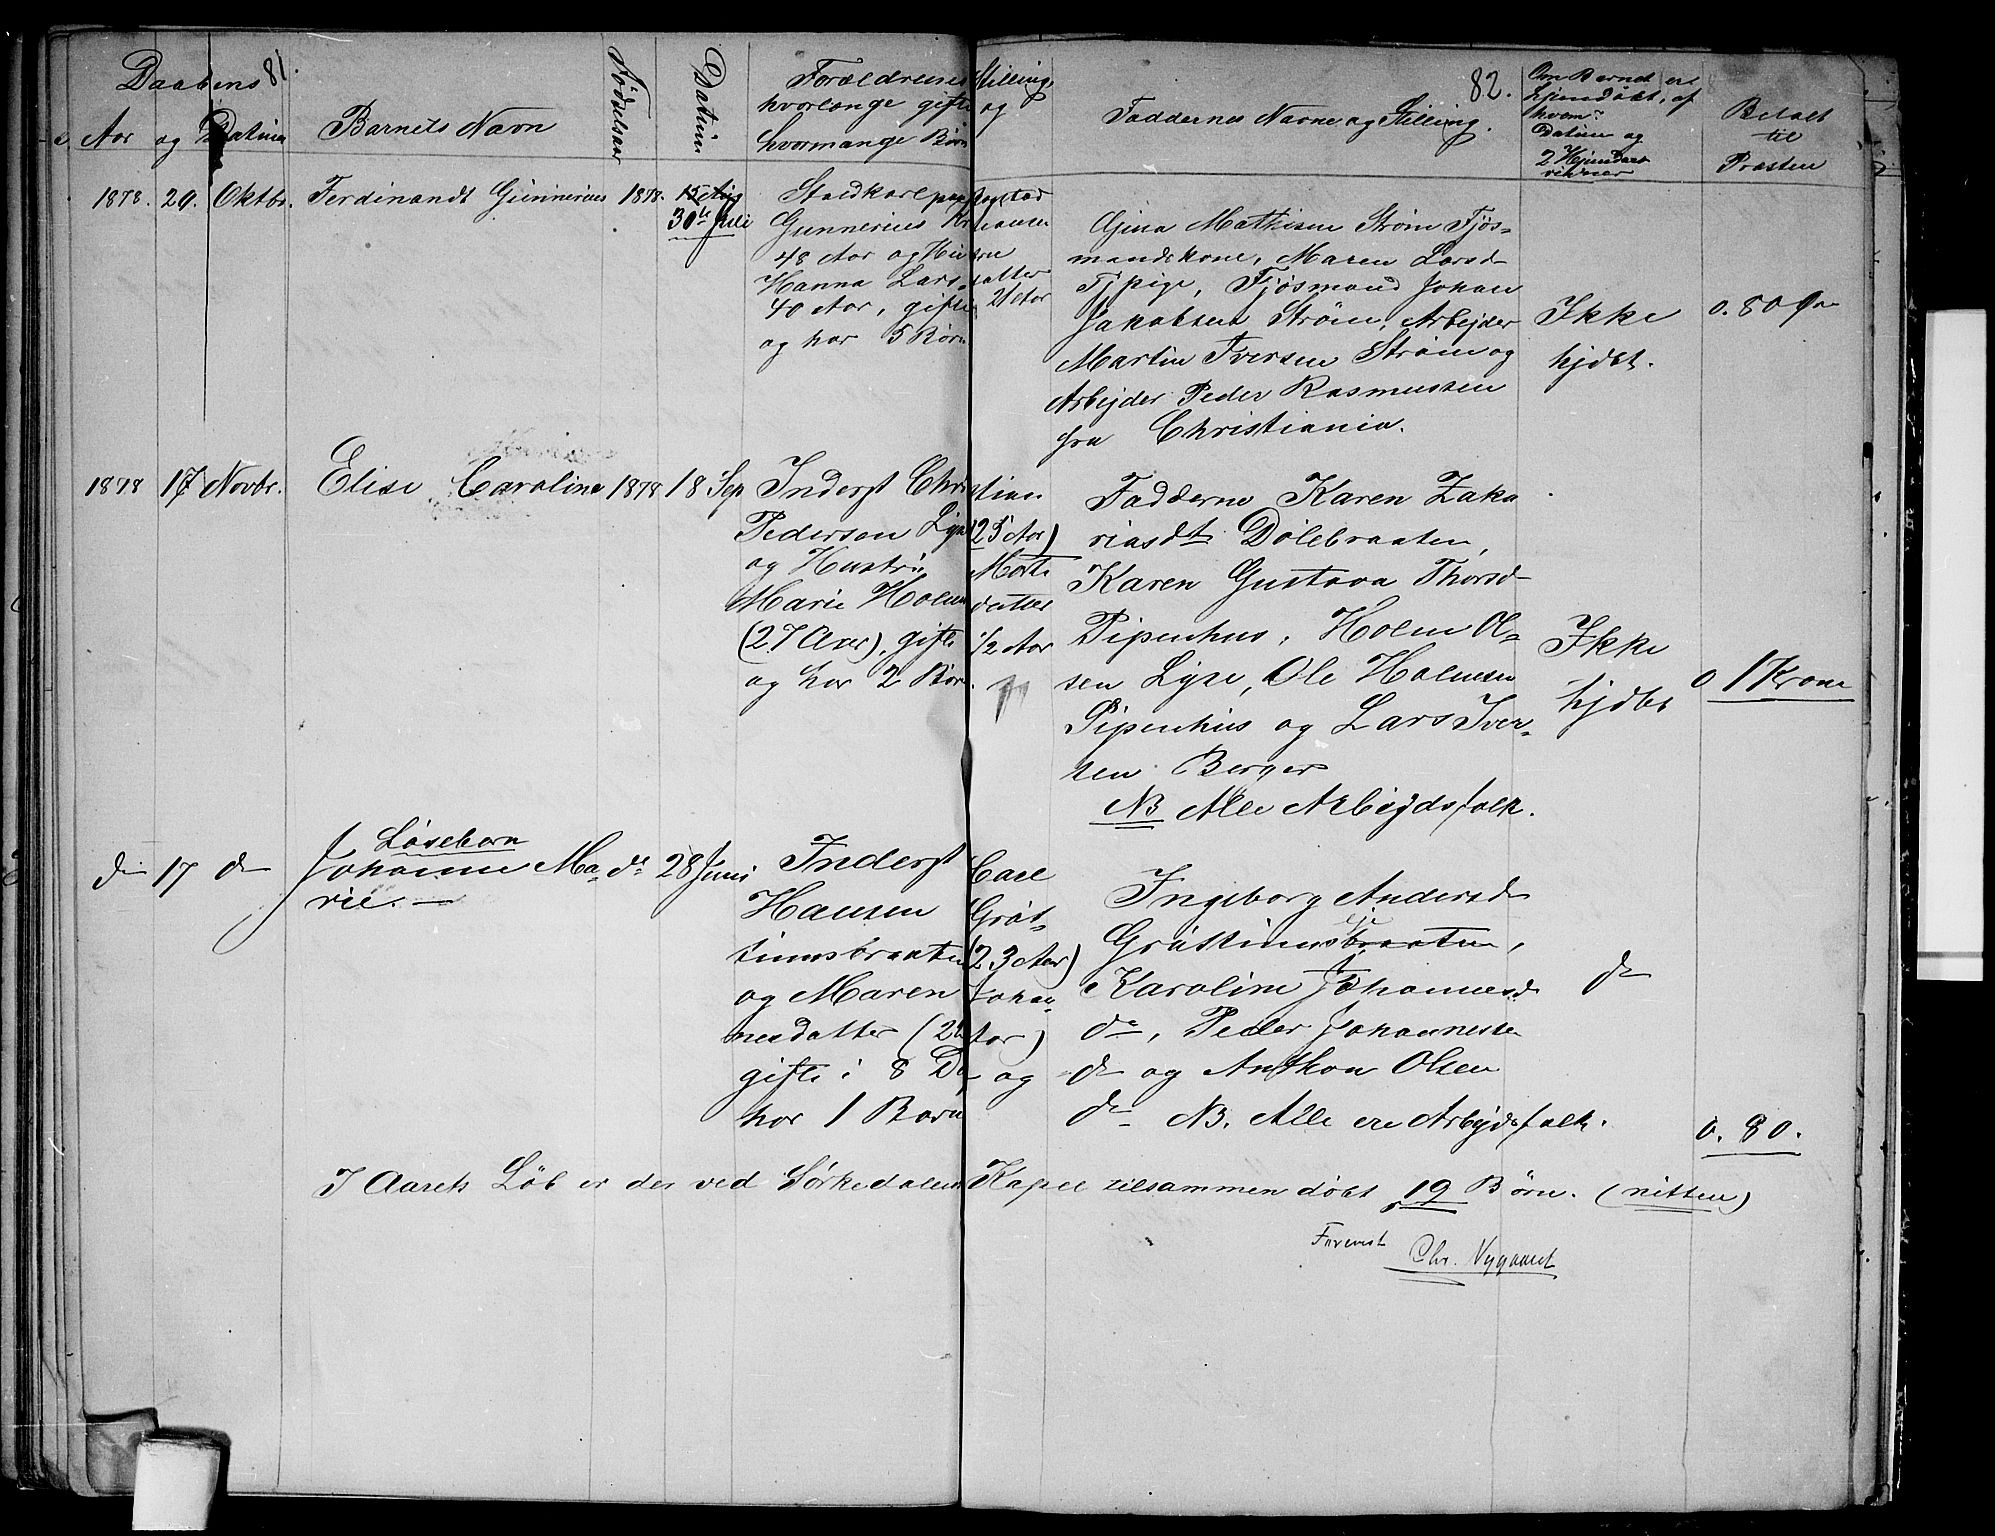 81.
Daabens
Aar og Datum
Barnets Navn
Fødselsaar
Datum
Forældrenes Stilling,
hvorlænge gifte og
hvormange Børn
82.
Faddernes Navne og Stilling.
Om Barnet er
hjemdøbt, af
hvem?
Datum og
2 Hjemdaabs
vidner
Betalt
til
Præsten
1878. 29. Oktbr. Ferdinandt Gunnerius 1878.
30te Juli
Staldkarl paa
Gunnerius
48 Aar og Hustru
Hanna Larsdatter
40 Aar, gifte 21 Aar
og har 5 Børn
Gina Mathisen Strøm Fjøs-
mandskone, Maren Larsd
Tjpige, Fjøsmand Johan
Jakobsen Strøm, Arbejder
Martin Iversen Strøm og
Arbejder Peder Rasmussen
fra Christiania.
Ikke
hjdbt.
0.80 Øre
1878 17 Novbr. Elise Caroline 1878 18 Sep
Inderst Christian
Pedersen (25 Aar)
og Hustru Marte
Marie Holmsdatter
(27 Aar), gifte 1/2 Aar
og har 2 Børn.
Fadderne Karen Zaka
riasdt Dølebraaten,
Karen Gustava Thorsd
Pipenhus, Holm Ol-
sen Lyse, Ole Holmsen
Pipenhus og Lars Iver-
sen Berger
NB Alle Arbejdsfolk.
Ikke
hjdbt
0 1 Krone
do 17 do
Løsebarn
Johanne Ma-
rie. —
do 28 Juni
Inderst Carl
Hansen Grøt-
tumsbraaten (23 Aar)
og Maren Johan-
nesdatter
gifte i 8 D og
har 1 Barn
Ingeborg Andersd
Grøttumsbraaten,
eje
Karoline Johannesd
do, Peder Johannesen
do og Anthon Olsen
do NB. Alle ere Arbejdsfolk.
do
0.80.
I Aarets Løb er der ved Sørkedalens Kapel tilsammen døbt 19 Børn. (nitten)
Forevist
Chr. Nygaard